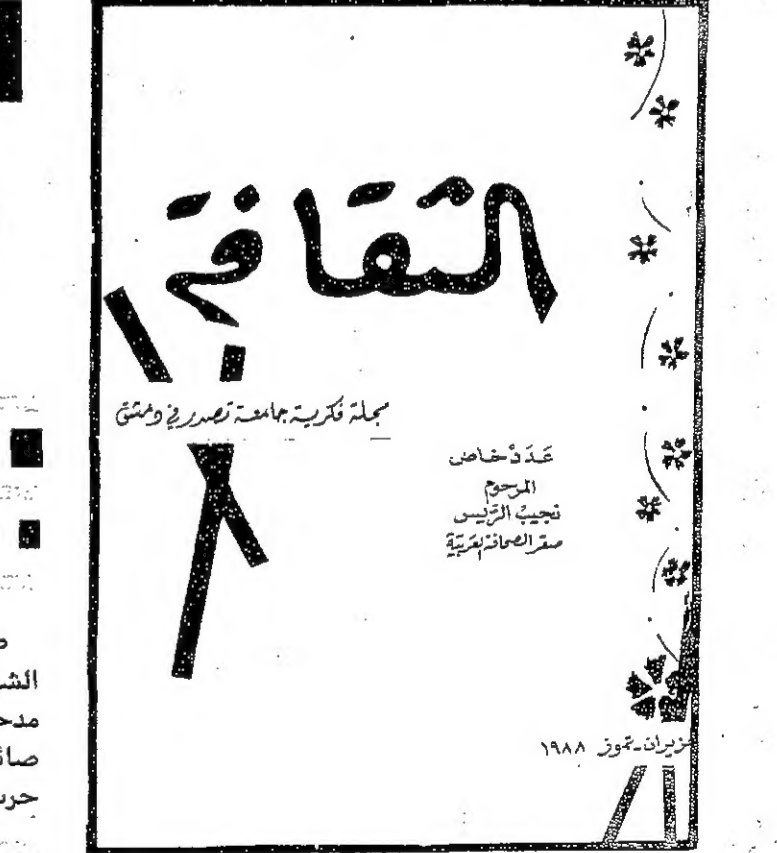 الثقافة
مجلة فكرية جامعة تصدر في دمشق
عَدَد خاص
المرحوم
نجيب الريّس
صقر الصحافة العربيّة
حزيران - تموز ١٩٨٨
الش
مدح
حر